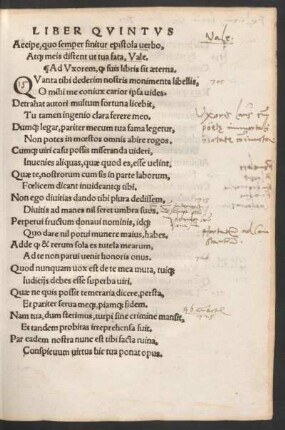 LIBER QVINTVS
Accipe, quo semper finitur epistola verbo, Vale.
Atq; meis distent ut tua fata, Vale.
¶Ad Vxorem, q̃ suis libris sit æterna.
QVanta tibi dederim nostris monimenta libellis,
O mihi me coniux carior ipsa uides.
Detrahat autori multum fortuna licebit,
Tu tamen ingenio clara ferere meo.
Dumq; legar, pariter mecum tua fama legetur,
Non potes in moestos omnis abire rogos.
Cumq; uiri casu possis miseranda uideri,
Inuenies aliquas, quæ quod es, esse uelint,
Quæ te, nostrorum cum sis in parte laborum,
Foelicem dicant inuideantq; tibi.
Non ego diuitias dando tibi plura dedissem,
Diuitis ad manes nil feret umbra suos.
Perpetui fructum donaui nominis, idq;
Quo dare nil potui munere maius, habes.
Adde q̃ & rerum sola es tutela mearum,
Ad te non parui uenit honoris onus.
Quod nunquam uox est de te mea muta, tuiq;
Iudicijs debes esse superba uiri.
Quæ ne quis possit temeraria dicere, persta,
Et pariter serua meq;, piamq; fidem.
Nam tua, dum sterimus, turpi sine crimine mansit,
Et tandem probitas irreprehensa fuit.
Par eadem nostra nunc est tibi facta ruina,
Conspicuum uirtus hic tua ponat opus.